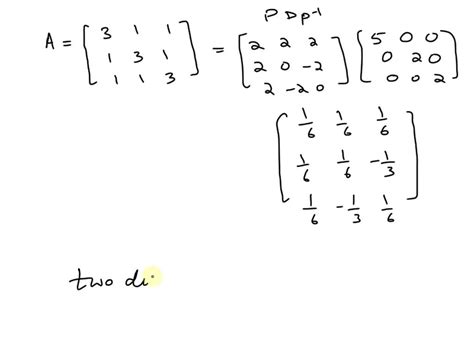 P D p-1
A = [3 1 1; 1 3 1; 1 1 3] = [2 2 2; 2 0 -2; 2 -2 0] [5 0 0; 0 2 0; 0 0 2]
[1/6 1/6 1/6; 1/6 1/6 -1/3; 1/6 -1/3 1/6]
two di